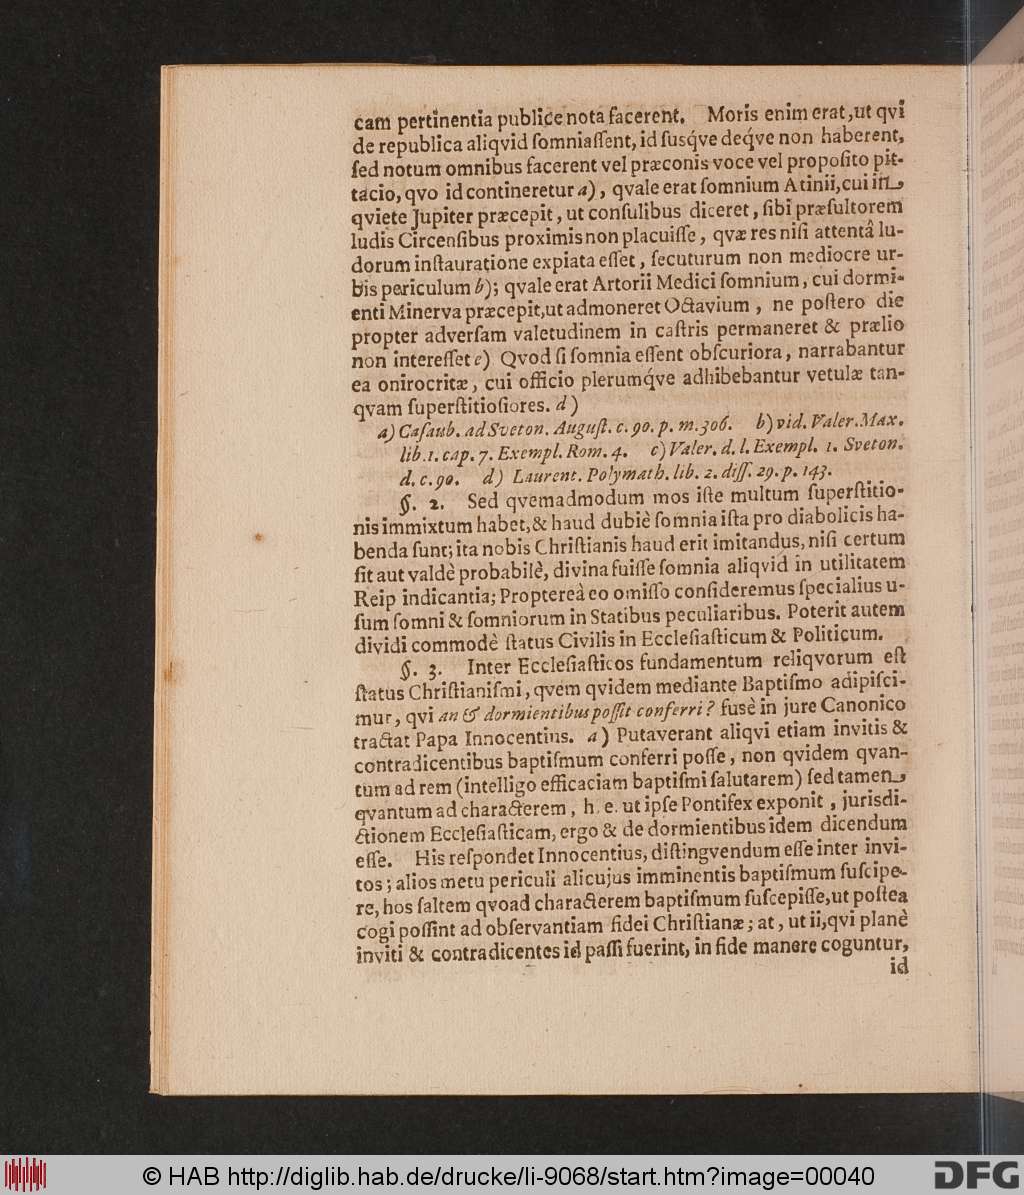 cam pertinentia publice nota facerent. Moris enim erat, ut qvi
de republica aliqvid ſomniaſſent, id ſusq́ve deq́ve non haberent,
ſed notum omnibus facerent vel præconis voce vel propoſito pit-
tacio, qvo id contineretur a), qvale erat ſomnium Atinii, cui in
qviete Jupiter præcepit, ut conſulibus diceret, ſibi præſultorem
ludis Circenſibus proximis non placuiſſe, qvæ res niſi attentâ lu-
dorum inſtauratione expiata eſſet, ſecuturum non mediocre ur-
bis periculum b); qvale erat Artorii Medici ſomnium, cui dormi-
enti Minerva præcepit, ut admoneret Octavium, ne poſtero die
propter adverſam valetudinem in caſtris permaneret & prælio
non intereſſet c) Qvod ſi ſomnia eſſent obſcuriora, narrabantur
ea onirocritæ, cui officio plerumq́ve adhibebantur vetulæ tan-
qvam ſuperſtitioſiores. d)
a) Caſaub. ad Sveton. Auguſt. c. 90. p. m. 306. b) vid. Valer. Max.
lib. 1. cap. 7. Exempl. Rom. 4. c) Valer. d. l. Exempl. 1. Sveton.
d. c. 90. d) Laurent. Polymath. lib. 2. diſſ. 29. p. 143.
§. 2. Sed qvemadmodum mos iſte multum ſuperſtitio-
nis immixtum habet, & haud dubiè ſomnia iſta pro diabolicis ha-
benda ſunt; ita nobis Chriſtianis haud erit imitandus, niſi certum
ſit aut valdè probabilè, divina fuiſſe ſomnia aliqvid in utilitatem
Reip indicantia; Proptereà eo omiſſo conſideremus ſpecialius u-
ſum ſomni & ſomniorum in Statibus peculiaribus. Poterit autem
dividi commodè ſtatus Civilis in Eccleſiaſticum & Politicum.
§. 3. Inter Eccleſiaſticos fundamentum reliqvorum eſt
ſtatus Chriſtianiſmi, qvem qvidem mediante Baptiſmo adipiſci-
mur, qvi an & dormientibus poſſit conferri? fusè in jure Canonico
tractat Papa Innocentius. a) Putaverant aliqvi etiam invitis &
contradicentibus baptiſmum conferri poſſe, non qvidem qvan-
tum ad rem (intelligo efficaciam baptiſmi ſalutarem) ſed tamen,
qvantum ad characterem, h. e. ut ipſe Pontifex exponit, jurisdi-
ctionem Eccleſiaſticam, ergo & de dormientibus idem dicendum
eſſe. His reſpondet Innocentius, diſtingvendum eſſe inter invi-
tos; alios metu periculi alicujus imminentis baptiſmum ſuſcipe-
re, hos ſaltem qvoad characterem baptiſmum ſuſcepiſſe, ut poſtea
cogi poſſint ad obſervantiam fidei Chriſtianæ; at, ut ii, qvi planè
inviti & contradicentes id paſſi fuerint, in fide manere coguntur,
id
© HAB http://diglib.hab.de/drucke/li-9068/start.htm?image=00040
DFG